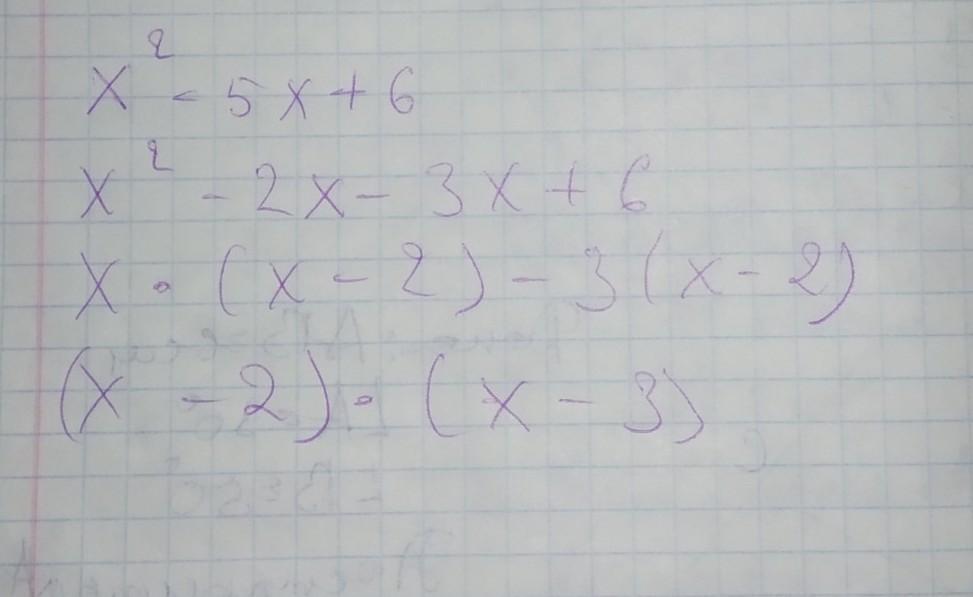 x² - 5x + 6
x² - 2x - 3x + 6
x · (x - 2) - 3(x - 2)
(x - 2) · (x - 3)